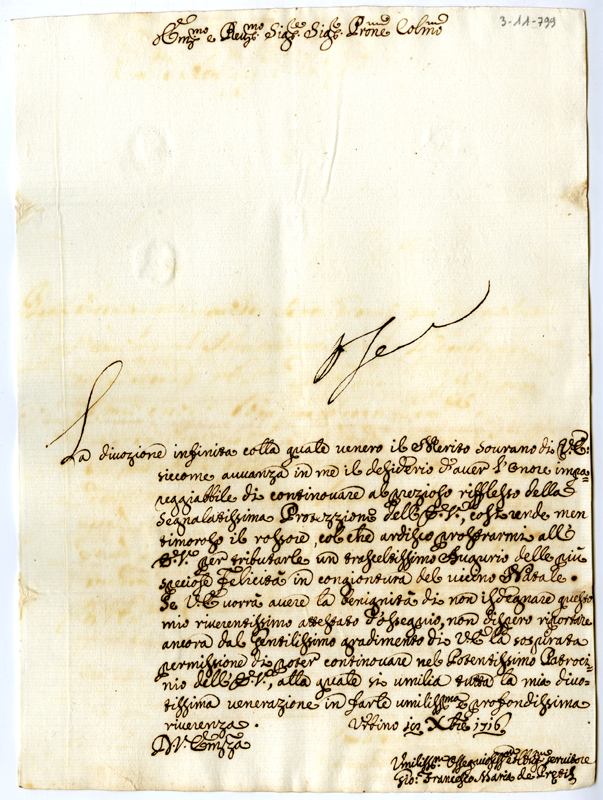 3-11-799
Em.mo e Reu.mo Sig.re Sig.re Prone Col.mo
La divozione infinita colla quale venero il Merito sourano di V.E.
siccome auuanza in me il desiderio d'auer l'Onore impa-
reggiabbile di continouare al prezioso rifflesso della
Segnalatissima Protezzione dell'E.V., così rende men
timoroso il rossore, col che ardisco prostrarmi all'
E.V. per tributarle un trasceltissimo Augurio delle più
speciose felicità in congiontura del vicino Natale.
Se V.E. uorrà auere la benignità di non isdegnare questo
mio riuerentissimo attestato d'ossequio, non dispero riportare
ancora dal gentilissimo gradimento di V.E. la sospirata
permissione di poter continouare nel Potentissimo Patroci-
nio dell'E.V., alla quale si umilia tutta la mia divo-
tissima venerazione in farle umiliss.ma e profondissima
riuerenza. Vttino Xbre 1716
D.V. Em.za
Vmiliss.o Ossequiosiss.o servitore
Gio. Francesco Maria de Pretis